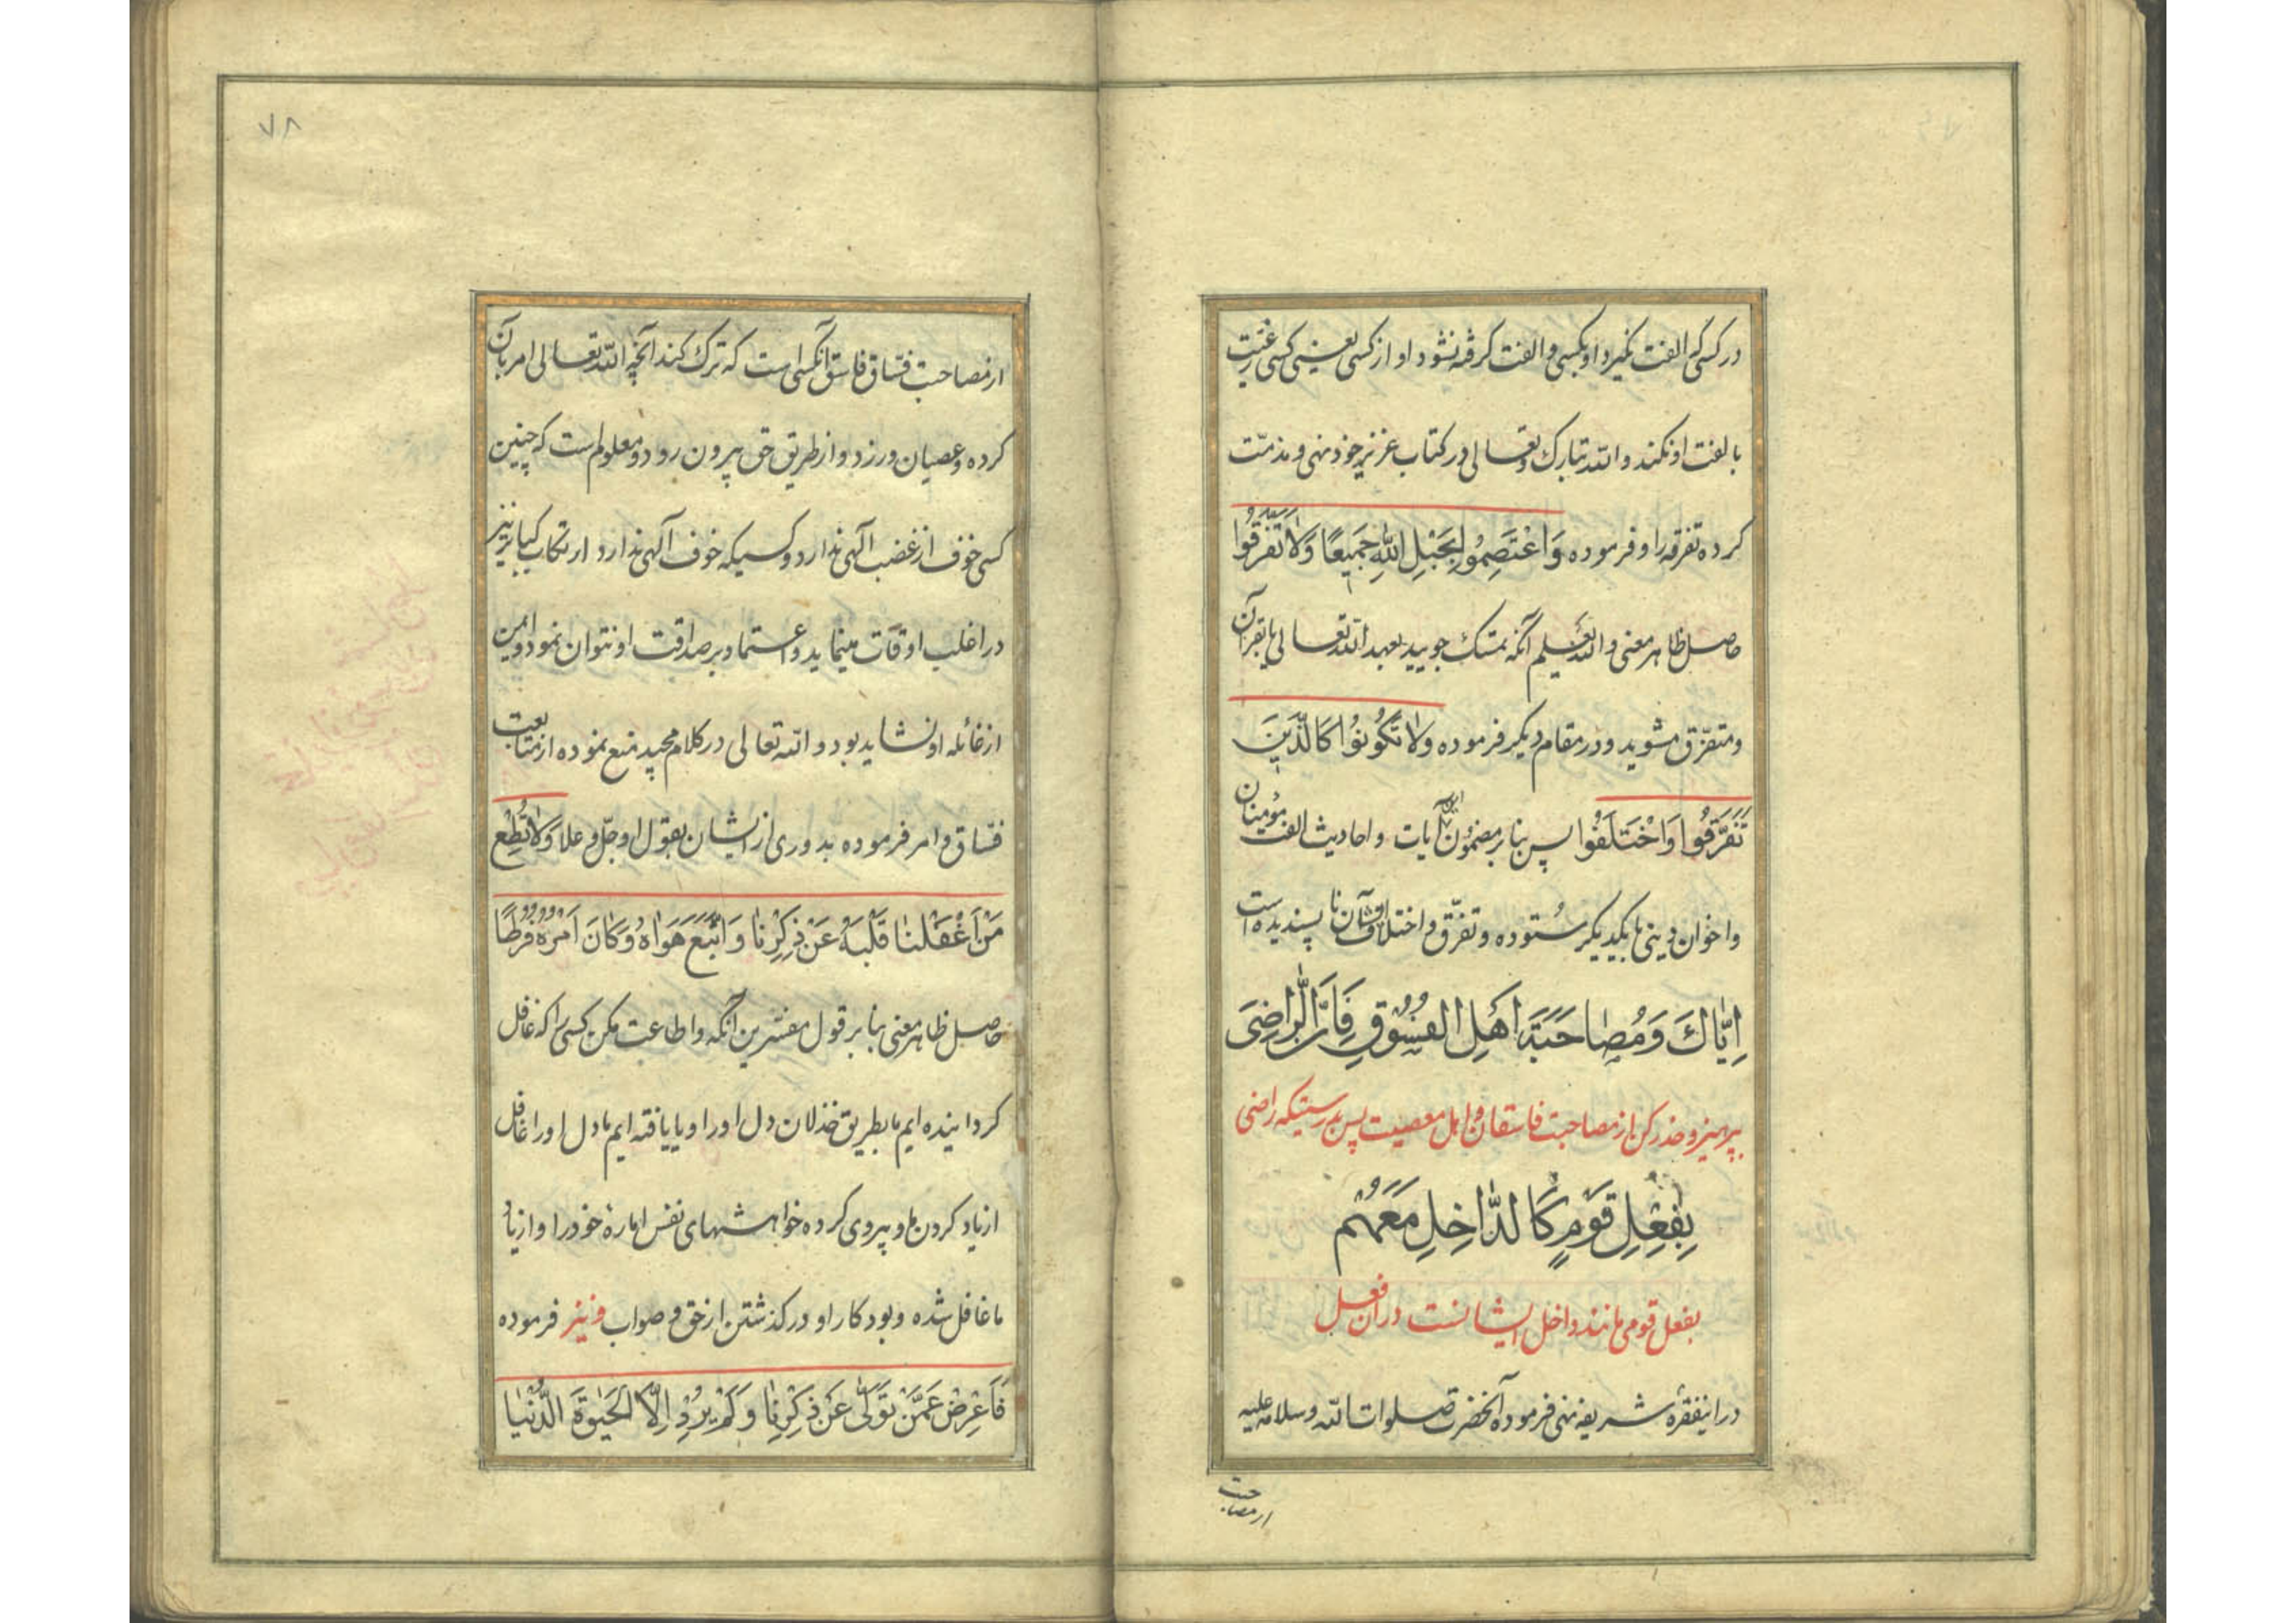 در کسی که الفت نگیرد او بکسی و الفت کرفته نشود او از کسی یعنی کسی رغبت
بالفت او نکند و الله تبارک و تعالی در کتاب عزیز خود نهی و مذمّت
کرده تفرقه را و فرموده وَاعْتَصِمُوا بِحَبْلِ اللّٰهِ جَمِیعًا وَلاٰ تَفَرَّقُوا
حاصل ظاهر معنی و الله یعلم آنکه تمسّک جویید بعهد الله تعالی یا بقرآن
و متفرّق مشوید و در مقام دیکر فرموده وَلاٰ تَکُونُوا کَالَّذِینَ
تَفَرَّقُوا وَاخْتَلَفُوا پس بنابر مضمون این آیات و احادیث الفت مؤمنان
و اخوان دینی با یکدیکر ستوده و تفرّق و اختلاف آن نا پسندیده است
اِیّٰاكَ وَمُصٰاحَبَةَ اَهْلِ الفُسُوقِ فَاِنَّ الرّٰاضِیَ
بپرهیز و حذر کن از مصاحبت فاسقان و اهل معصیت پس بدرستیکه راضی
بِفِعْلِ قَوْمٍ کَالدّٰاخِلِ مَعَهُمْ
بفعل قومی مانند داخل ایشانست در آن فعل
در اینفقره شریفه نهی فرموده آنحضرت صلوات الله و سلامه علیه
از مصاحبت
۷۸
از مصاحبت فسّاق فاسق آنکسی است که ترک کند آنچه الله تعالی امر بآن
کرده و عصیان ورزد و از طریق حق بیرون رود و معلوم است که چنین
کسی خوف از غضب آلهی ندارد و کسیکه خوف آلهی ندارد ارتکاب کبایر نیز
در اغلب اوقات مینماید و اعتماد بر صداقت او نتوان نمود و ایمن
از غائله او نشاید بود و الله تعالی در کلام مجید منع نموده از متابعت
فسّاق و امر فرموده بدوری از ایشان بقول او جلّ و علا وَلاٰ تُطِعْ
مَنْ اَغْفَلْنٰا قَلْبَهُ عَنْ ذِکْرِنٰا وَاتَّبَعَ هَوَاهُ وَکٰانَ اَمْرُهُ فُرُطًا
حاصل ظاهر معنی بنابر قول مفسّرین آنکه و اطاعت مکن کسی را که غافل
کردانیده ایم ما بطریق خذلان دل او را و یا یافته ایم ما دل او را غافل
از یاد کردن ما و پیروی کرده خواهشهای نفس امارهٔ خود را و از یاد
ما غافل شده و بود کار او در کذشتن از حق و صواب و نیز فرموده
فَاَعْرِضْ عَمَّنْ تَوَلّٰی عَنْ ذِکْرِنٰا وَلَمْ یُرِدْ اِلاَّ الْحَیٰوةَ الدُّنْیٰا